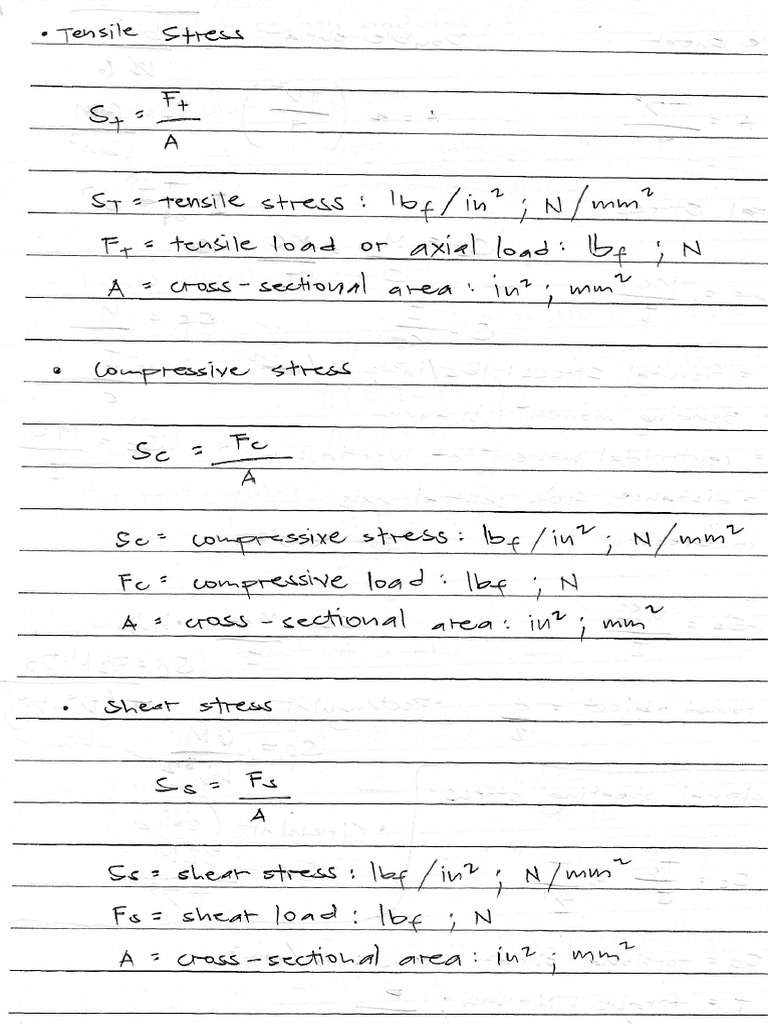 • Tensile Stress
St = Ft / A
ST = tensile stress : lbf/in² ; N/mm²
Ft = tensile load or axial load : lbf ; N
A = cross-sectional area : in² ; mm²
• Compressive stress
Sc = Fc / A
Sc = compressive stress : lbf/in² ; N/mm²
Fc = compressive load : lbf ; N
A = cross-sectional area : in² ; mm²
• Shear stress
Ss = Fs / A
Ss = shear stress : lbf/in² ; N/mm²
Fs = shear load : lbf ; N
A = cross-sectional area : in² ; mm²